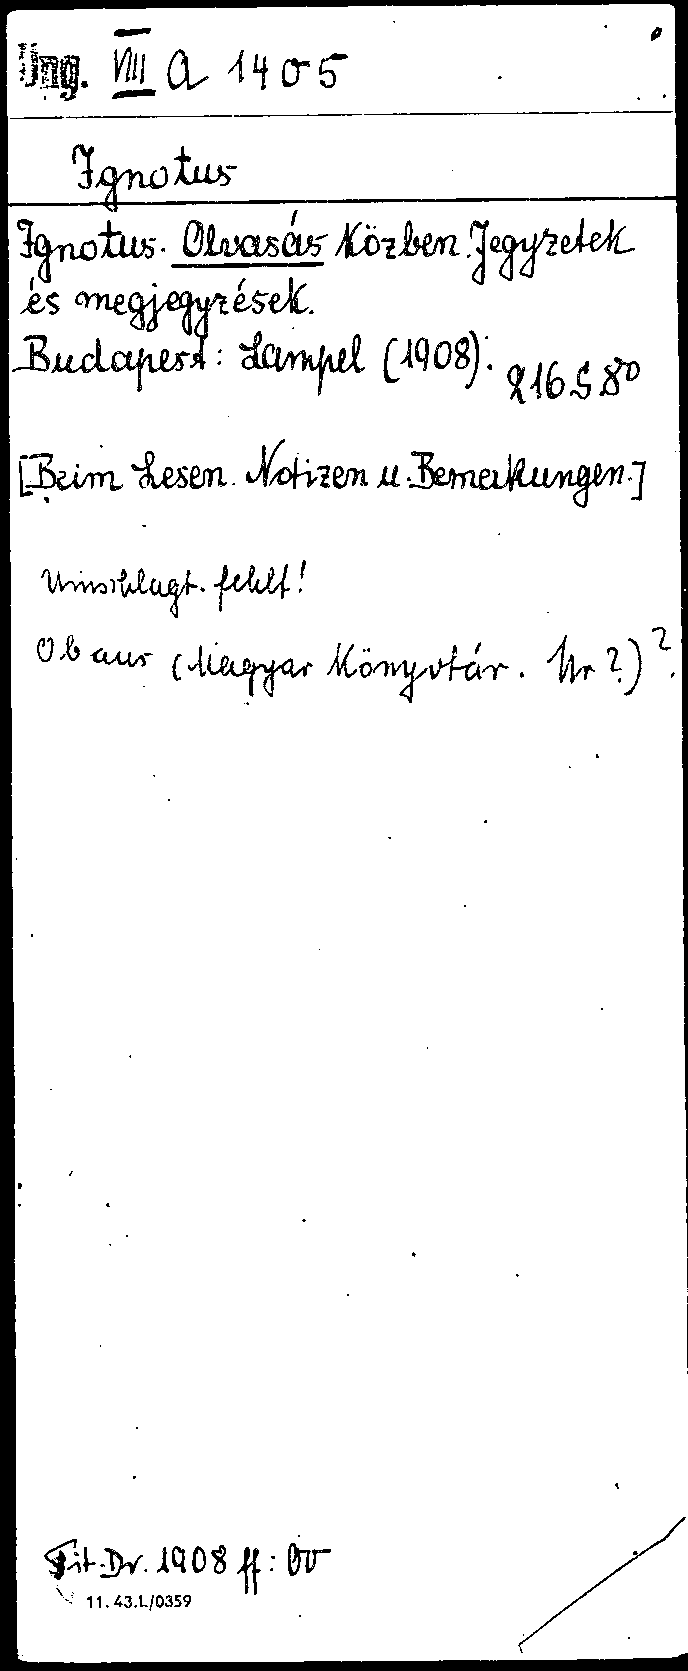 Ung. VIII A 1405
Ignotus
Ignotus. Olvasás Közben. Jegyzetek
és megjegyzések.
Budapest: Lampel (1908). 216 S 8°
[Beim Lesen. Notizen u. Bemerkungen.]
Umschlagt. fehlt!
Ob aus (Magyar Könyvtár. Nr ?.)?
Tit. Dr. 1908 ff:
11. 43. L/0359